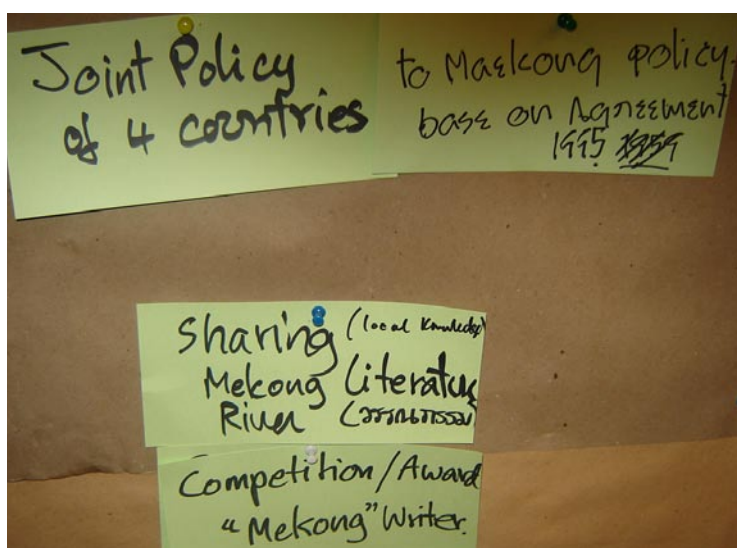 Joint Policy
of 4 countries
to Maekong policy
base on Agreement
1995
Sharing (local knowledge)
Mekong Literature
River (วรรณกรรม)
Competition/Award
"Mekong" Writer.